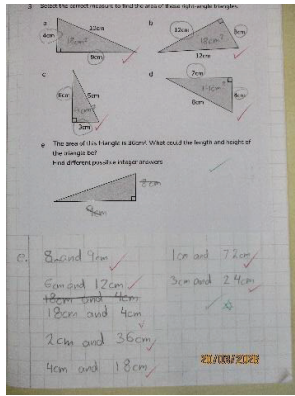 3 Select the correct measure to find the area of these right-angle triangles.
a
b
12cm
12cm
8cm
12cm
c
d
7cm
5cm
8cm
3cm
e The area of this triangle is 36cm². What could the length and height of
the triangle be?
Find different possible integer answers
8cm
9cm
e. 8 and 9cm
1cm and 72cm
6cm and 12cm
3cm and 24cm
18cm and 4cm
18cm and 4cm
2cm and 36cm
4cm and 18cm